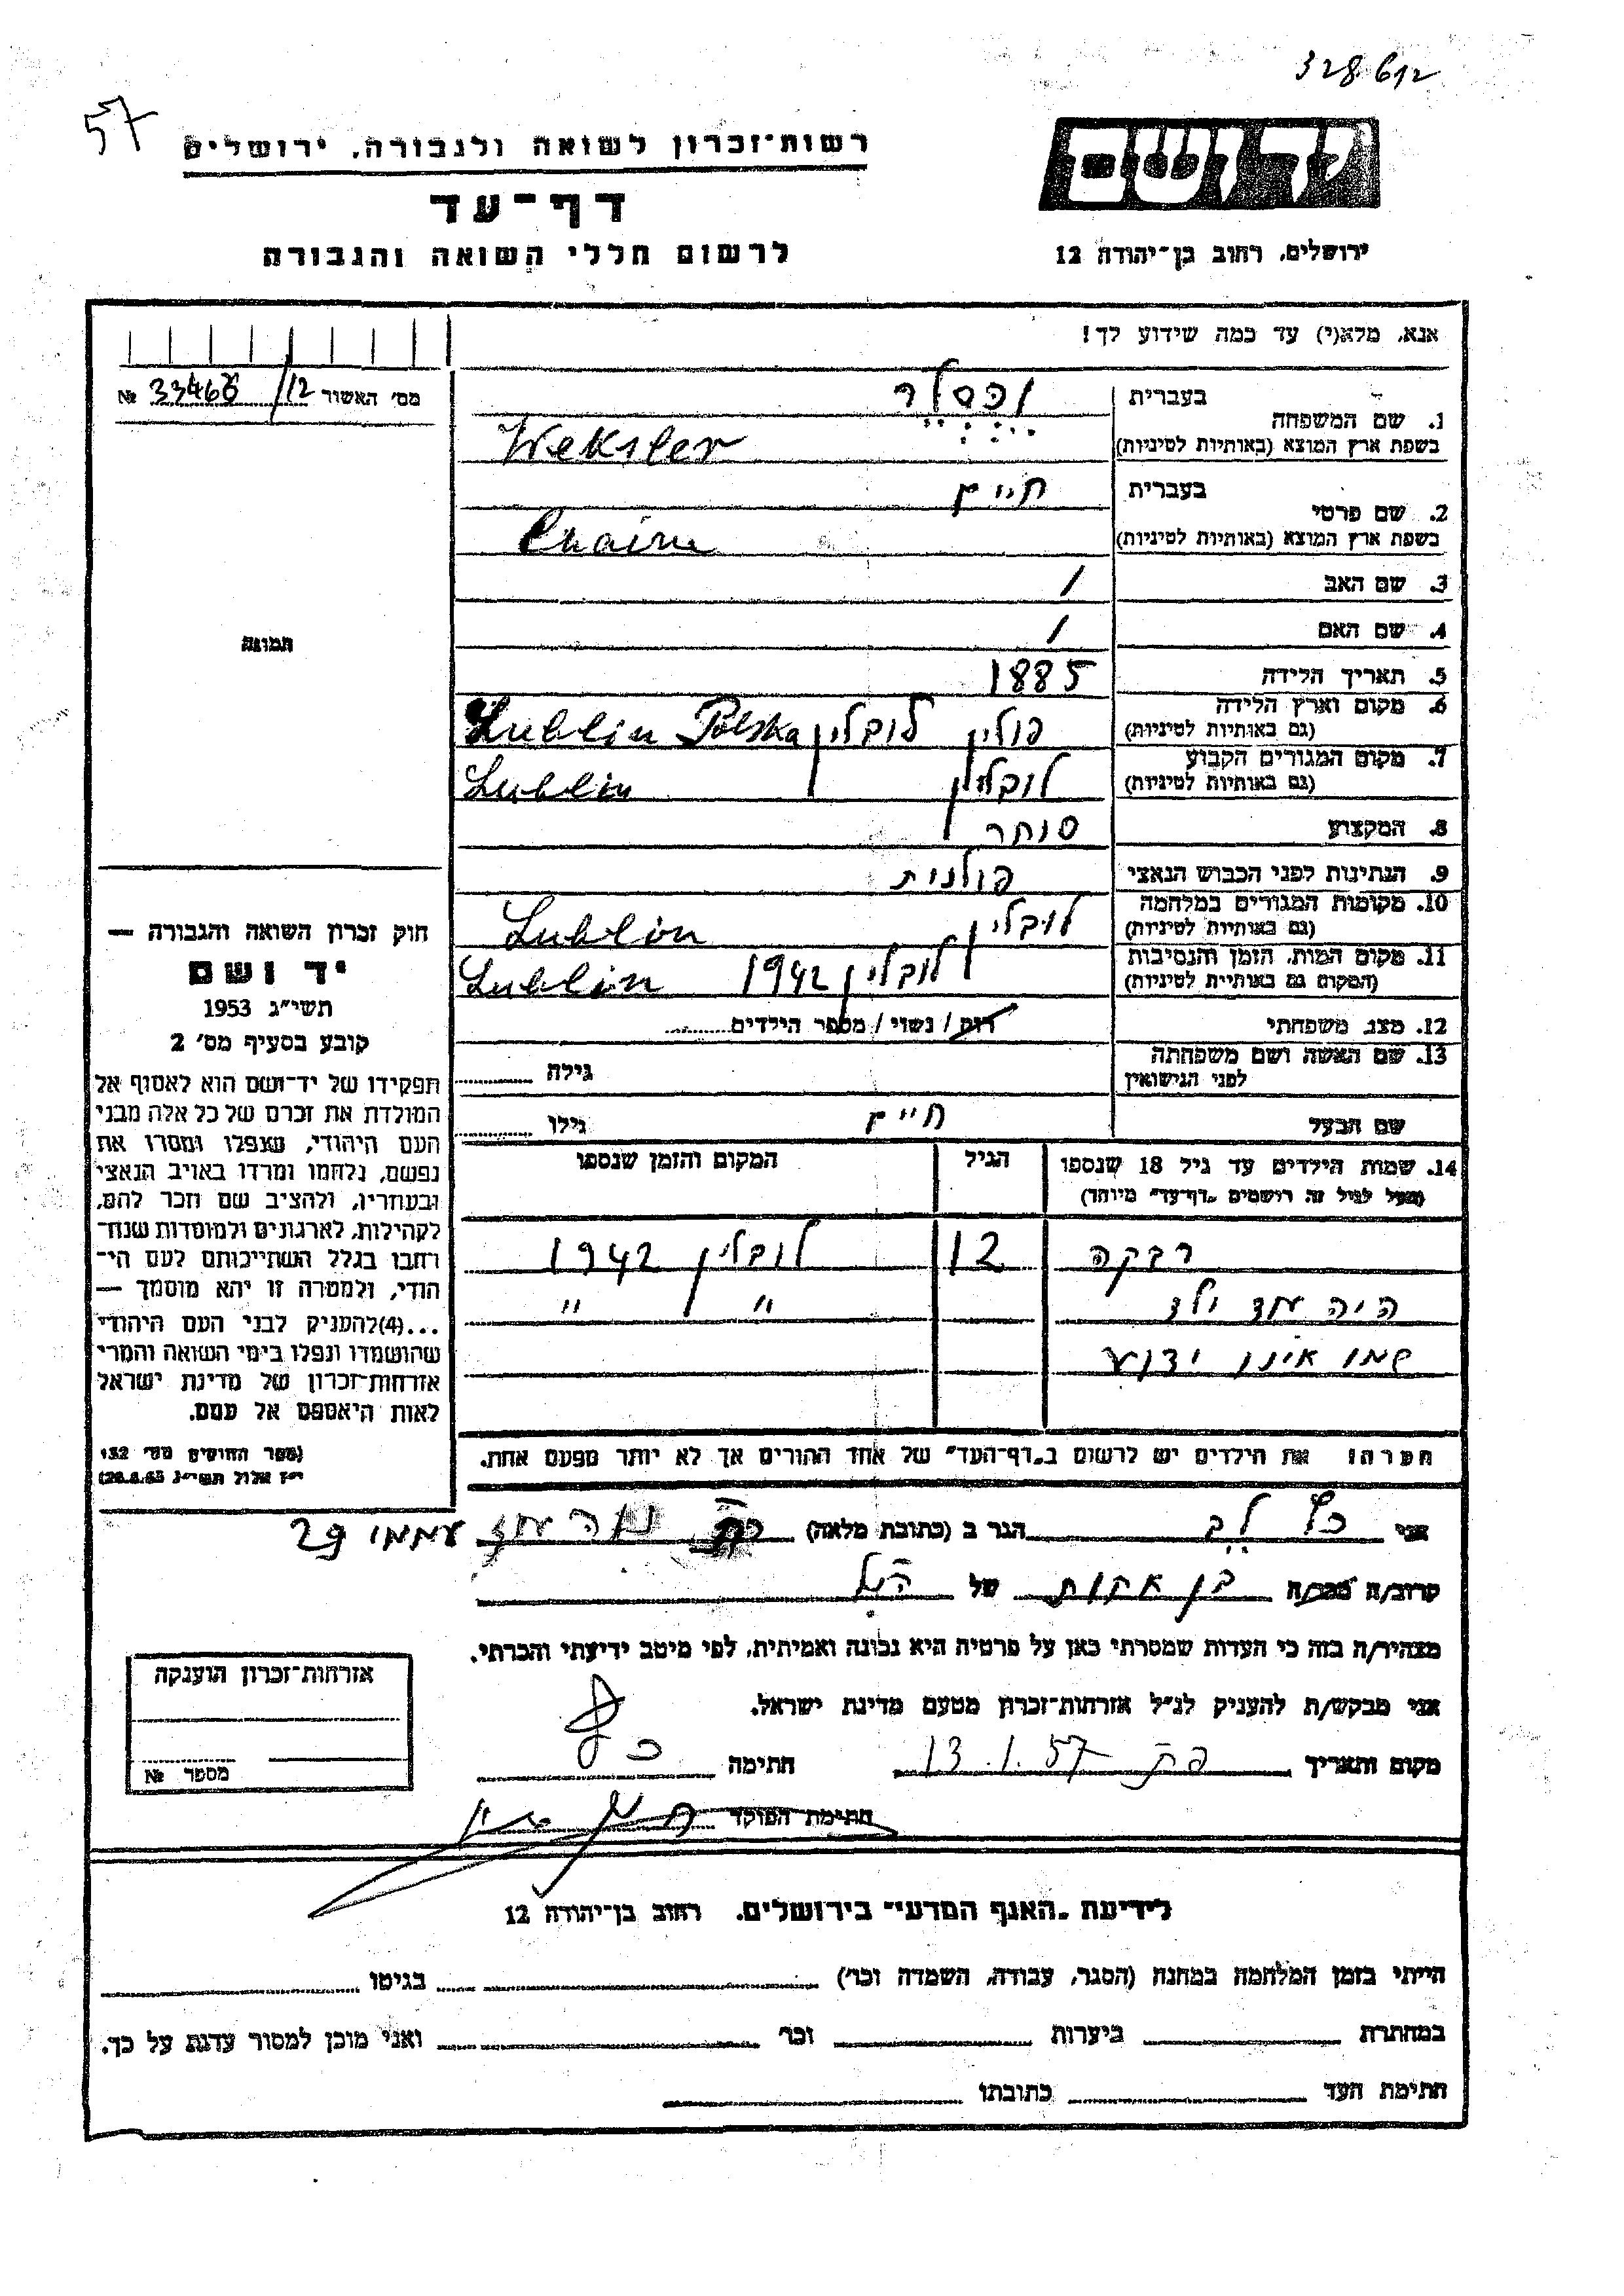 328612
57
יד ושם
רשות־זכרון לשואה ולגבורה, ירושלים
דף־עד
לרשום חללי השואה והגבורה
ירושלים, רחוב בן־יהודה 12
אנא, מלא(י) עד כמה שידוע לך!
מס׳ האשור 12/ 33468 №
1. שם המשפחה
בעברית וכסלר
בשפת ארץ המוצא (באותיות לטיניות) Weksler
2. שם פרטי
בעברית חיים
בשפת ארץ המוצא (באותיות לטיניות) Chaim
3. שם האב /
4. שם האם /
תמונה
5. תאריך הלידה 1885
6. מקום וארץ הלידה
(גם באותיות לטיניות) פולין לובלין Lublin Polska
7. מקום המגורים הקבוע
(גם באותיות לטיניות) לובלין Lublin
8. המקצוע סוחר
9. הנתינות לפני הכבוש הנאצי פולנית
10. מקומות המגורים במלחמה
(גם באותיות לטיניות) לובלין Lublin
11. מקום המות, הזמן והנסיבות
(המקום גם באותיות לטיניות) לובלין 1942 Lublin
12. מצב משפחתי רוק / נשוי / מספר הילדים
13. שם האשה ושם משפחתה
לפני הנישואין גילה
שם הבעל חיים גילו
14. שמות הילדים עד גיל 18 שנספו הגיל המקום והזמן שנספו
(מעל לגיל זה רושמים „דף־עד” מיוחד)
רבקה 12 לובלין 1942
היה עוד ילד " "
שמו אינו ידוע
חוק זכרון השואה והגבורה —
יד ושם
תשי״ג 1953
קובע בסעיף מס׳ 2
תפקידו של יד־ושם הוא לאסוף אל
המולדת את זכרם של כל אלה מבני
העם היהודי, שנפלו ומסרו את
נפשם, נלחמו ומרדו באויב הנאצי
ובעוזריו, ולהציב שם וזכר להם,
לקהילות, לארגונים ולמוסדות שנח־
רחבו בגלל השתייכותם לעם הי־
הודי, ולמטרה זו יהא מוסמך —
...(4)להעניק לבני העם היהודי
שהושמדו ונפלו בימי השואה והמרי
אזרחות־זכרון של מדינת ישראל
לאות היאספם אל עמם.
(ספר החוקים מס׳ 132
הערה: את הילדים יש לרשום ב„דף־העד” של אחד ההורים אך לא יותר מפעם אחת.
אני כץ לב הגר ב (כתובת מלאה) נוה עוז עממי 29
קרוב/ה מכר/ה בן אחות של הנ״ל
מצהיר/ה בזה כי העדות שמסרתי כאן על פרטיה היא נכונה ואמיתית, לפי מיטב ידיעתי והכרתי.
אני מבקש/ת להעניק לנ״ל אזרחות־זכרון מטעם מדינת ישראל.
מקום ותאריך פת 13.1.57 חתימה כץ
חתימת הפוקד
אזרחות־זכרון הוענקה
מספר №
לידיעת „האגף המדעי” בירושלים, רחוב בן־יהודה 12
הייתי בזמן המלחמה במחנה (הסגר, עבודה, השמדה וכר׳) בגיטו
במחתרת ביערות וכר׳ ואני מוכן למסור עדות על כך.
חתימת העד כתובתו